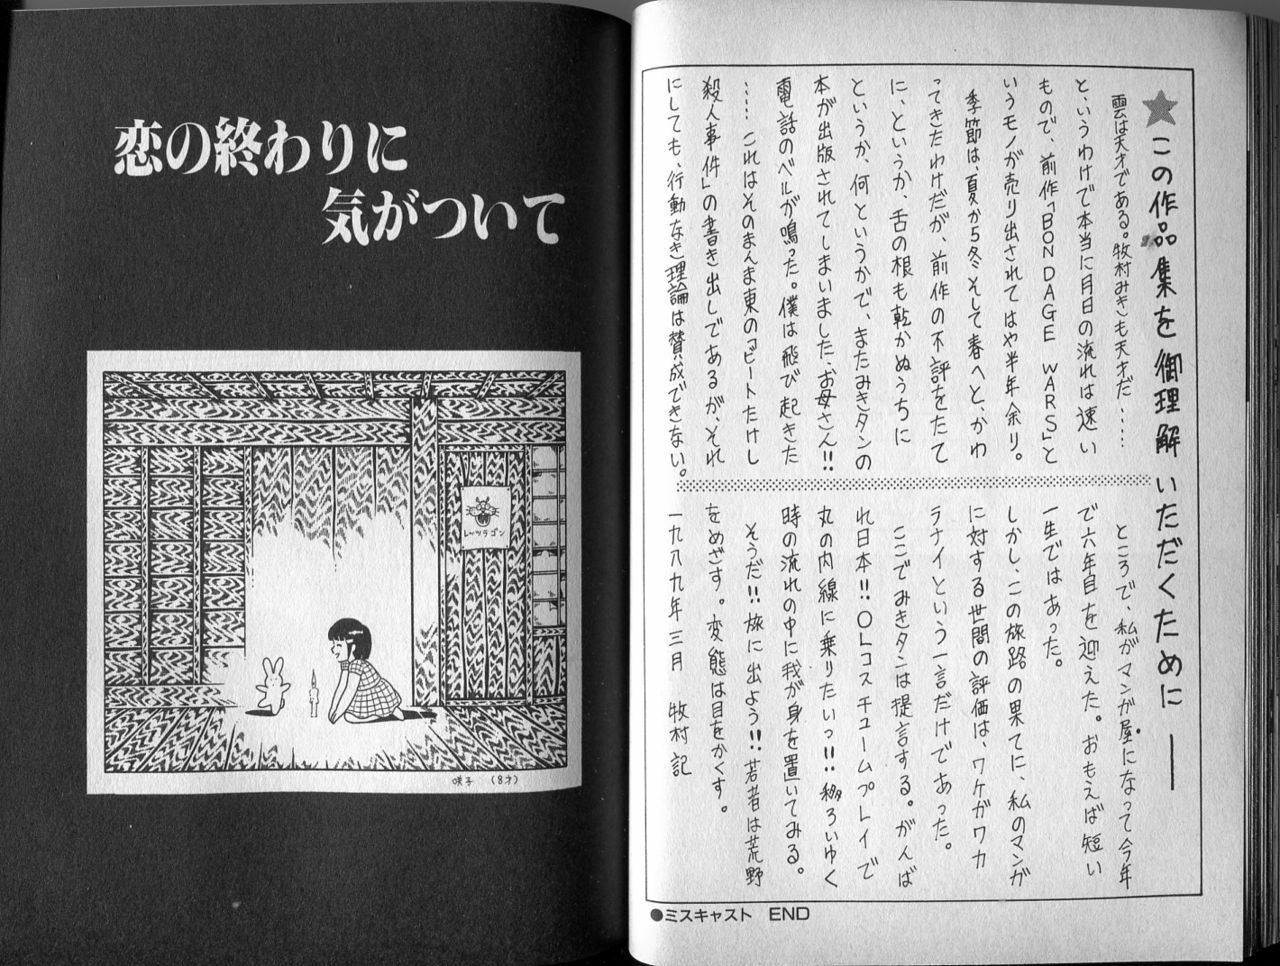 ★この作品集を御理解いただくために──
雲は天才である。牧村みきも天才だ……
と、いうわけで本当に月日の流れは速い
もので、前作「BONDAGE WARS」と
いうモノが売り出されてはや半年余り。
季節は、夏から冬そして春へと、かわ
ってきたわけだが、前作の不評をたて
に、というか、舌の根も乾かぬうちに
というか、何というかで、またみきタンの
本が出版されてしまいました、お母さん!!
電話のベルが鳴った。僕は飛び起きた
……これはそのまんま東の「ビートたけし
殺人事件」の書き出しであるが、それ
にしても、行動なき理論は賛成できない。
ところで、私がマンガ屋になって今年
で六年目を迎えた。おもえば短い
一生ではあった。
しかし、この旅路の果てに、私のマンガ
に対する世間の評価は、ワケガワカ
ラナイという一言だけであった。
ここでみきタンは提言する。がんば
れ日本!!OLコスチュームプレイで
丸の内線に乗りたいっ!!移ろいゆく
時の流れの中に我が身を置いてみる。
そうだ!!旅に出よう!!若者は荒野
をめざす。変態は目をかくす。
一九八九年三月 牧村記
●ミスキャスト END
恋の終わりに
気がついて
レッツラゴン
咲子（8才）